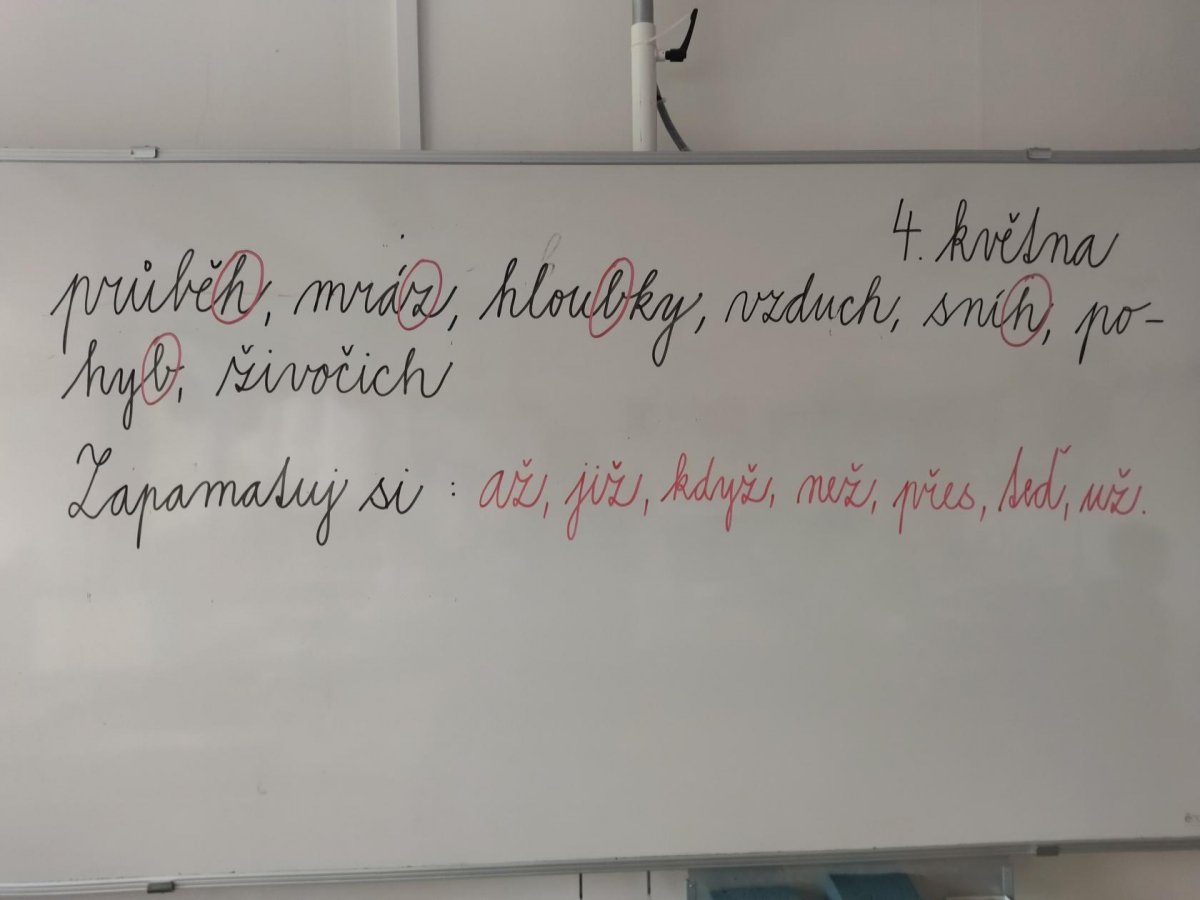 4. května
průběh, mráz, hloubky, vzduch, sníh, po-
hyb, živočich
Zapamatuj si : až, již, když, než, přes, teď, už.